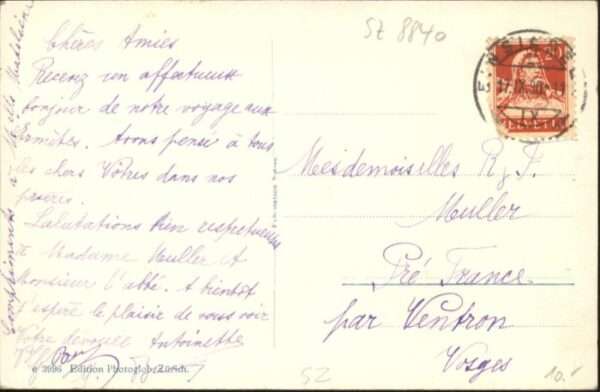 SZ 8840
Chères Amies
Recevez un affectueux
bonjour de notre voyage aux
Ermites. Avons pensé à tous
les chers Vôtres dans nos
prières.
Salutations bien respectueuses
à Madame Muller et
Monsieur l'abbé. A bientôt
J'espère le plaisir de vous voir
Votre dévouée Antoinette
Compliments à Mlle Madeleine
EINSIEDELN
17.IX.30
HELVETIA
Mesdemoiselles R. J.
Muller
Pré France
par Ventron
Vosges
3996 Edition Photoglob, Zürich.
SZ
10.-